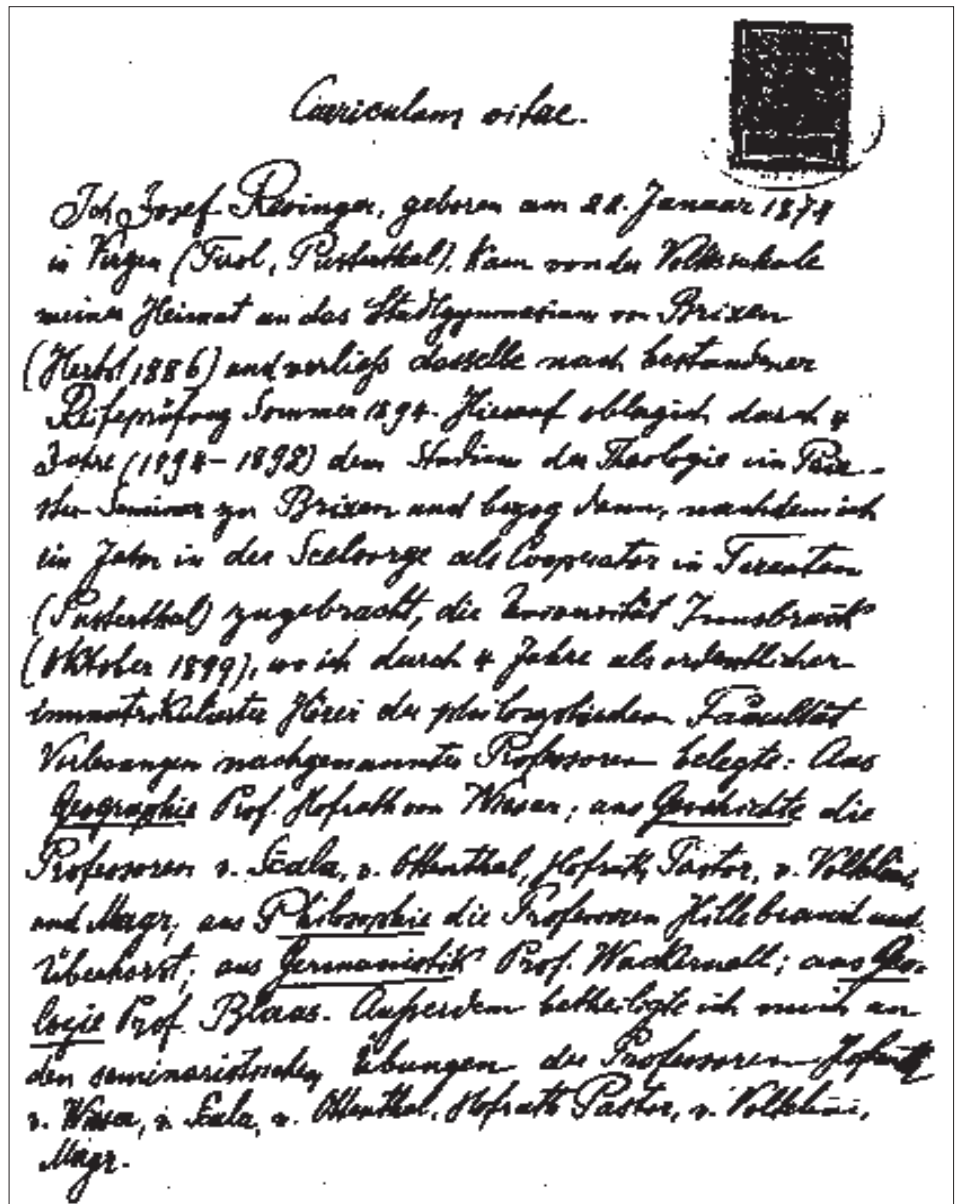 Curriculum vitae.
Ich, Josef Resinger, geboren am 22. Januar 1874
in Virgen (Tirol, Pusterthal). Kam von der Volksschule
meiner Heimat an das Stadtgymnasium von Brixen
(Herbst 1886) und verließ dasselbe nach bestandener
Reifeprüfung Sommer 1894. Hierauf oblag ich durch 4
Jahre (1894–1898) dem Studium der Theologie im Prie-
ster-Seminar zu Brixen und bezog dann, nachdem ich
ein Jahr in der Seelsorge als Cooperator in Terenten
(Pusterthal) zugebracht, die Universität Innsbruck
(Oktober 1899), wo ich durch 4 Jahre als ordentlicher
immatrikulierter Hörer der philosophischen Facultät
Vorlesungen nachgenannter Professoren belegte: Aus
Geographie Prof. Hofrath von Wieser; aus Geschichte die
Professoren v. Scala, v. Ottenthal, Hofrath Pastor, v. Voltelini,
und Mayr; aus Philosophie die Professoren Hillebrand und
Überhorst; aus Germanistik Prof. Wackernell; aus Geo-
logie Prof. Blaas. Außerdem betheiligte ich mich an
den seminaristischen Übungen der Professoren Hofrath
v. Wieser, v. Scala, v. Ottenthal, Hofrath Pastor, v. Voltelini,
Mayr.